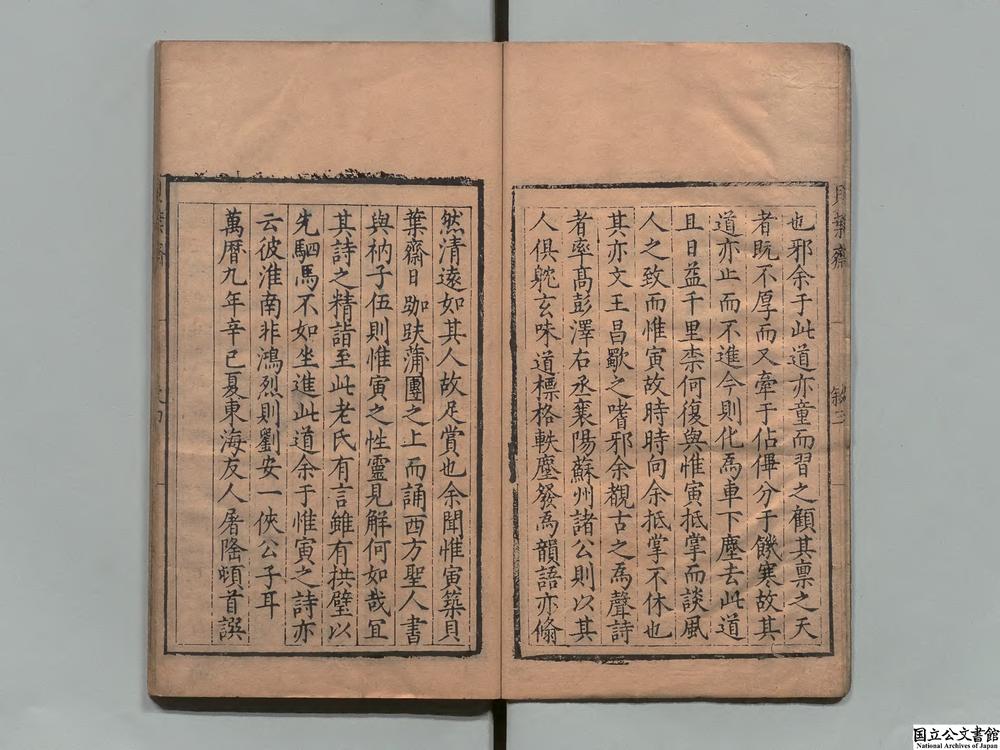 也邪余于此道亦童而習之顧其禀之天
者既不厚而又牽于佔俾分于饑寒故其
道亦止而不進今則化為車下塵去此道
且日益千里柰何復與惟寅抵掌而談風
人之致而惟寅故時時向余抵掌不休也
其亦文王昌歜之嗜邪余覩古之為聲詩
者率高彭澤右丞襄陽蘇州諸公則以其
人俱躭玄味道標格軼塵發為韻語亦翛
然清遠如其人故足賞也余聞惟寅築貝
葉齋日跏趺蒲團之上而誦西方聖人書
與衲子伍則惟寅之性靈見解何如哉冝
其詩之精詣至此老氏有言雖有拱璧以
先駟馬不如坐進此道余于惟寅之詩亦
云彼淮南非鴻烈則劉安一俠公子耳
萬曆九年辛巳夏東海友人屠隆頓首譔
貝葉齋
敘三
葉齋
国立公文書館
National Archives of Japan